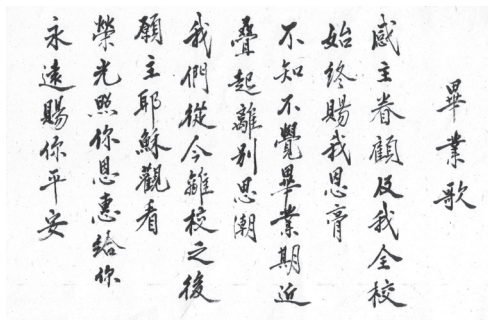 畢業歌
感主眷顧及我全校
始終賜我恩膏
不知不覺畢業期近
疊起離別思潮
我們從今離校之後
願主耶穌觀看
榮光照你恩惠給你
永遠賜你平安